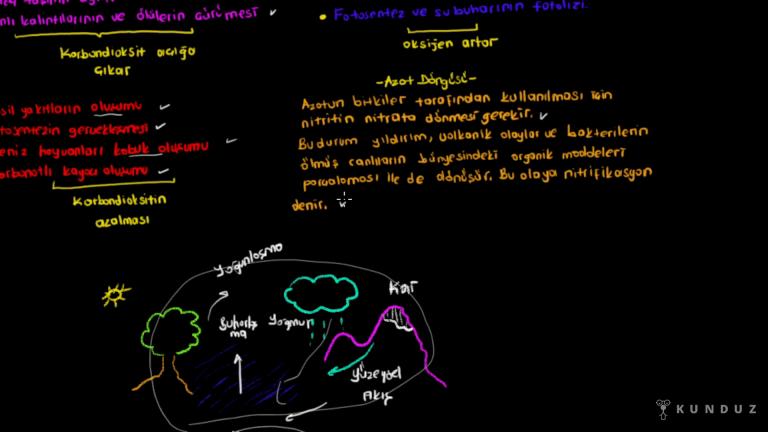 kalıntılarının ve ölülerin çürümesi
Karbondioksit açığa
çıkar
yakıtların oluşumu
gerçekleşmesi
hayvanları kabuk oluşumu
kayaç oluşumu
Karbondioksitin
azalması
• Fotosentez ve su buharının fotolizi.
oksijen artar
-Azot Döngüsü-
Azotun bitkiler tarafından kullanılması için
nitritin nitrata dönmesi gerekir.
Bu durum yıldırım, volkanik olaylar ve bakterilerin
ölmüş canlıların bünyesindeki organik maddeleri
parçalaması ile de dönüşür. Bu olaya nitrifikasyon
denir.
Yoğunlaşma
Kar
Buharlaş
ma
Yağmur
Yüzeysel
Akış
KUNDUZ